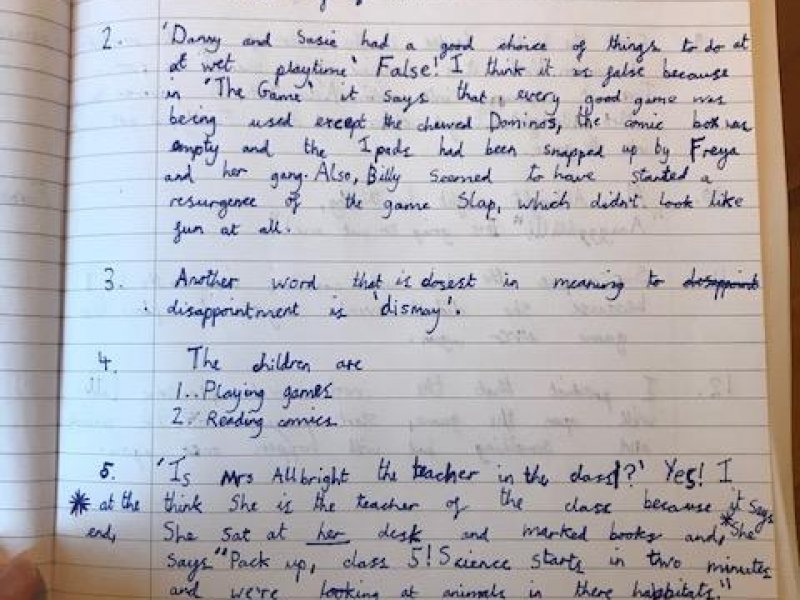 2. 'Danny and Susie had a good choice of things to do at
at wet playtime' False! I think it is false because
in 'The Game' it says that, every good game was
being used except the chewed Dominos, the comic box was
empty and the Ipads had been snapped up by Freya
and her gang. Also, Billy seemed to have started a
resurgence of the game Slap, which didn't look like
fun at all.
3. Another word that is closest in meaning to disappoint
disappointment is 'dismay'.
4. The children are
1.. Playing games
2. Reading comics
5. 'Is Mrs Allbright the teacher in the class?' Yes! I
* at the think She is the teacher of the class because it says
end, She sat at her desk and marked books and, *She
says "Pack up, class 5! Science starts in two minutes
and we're looking at animals in there habbitats."